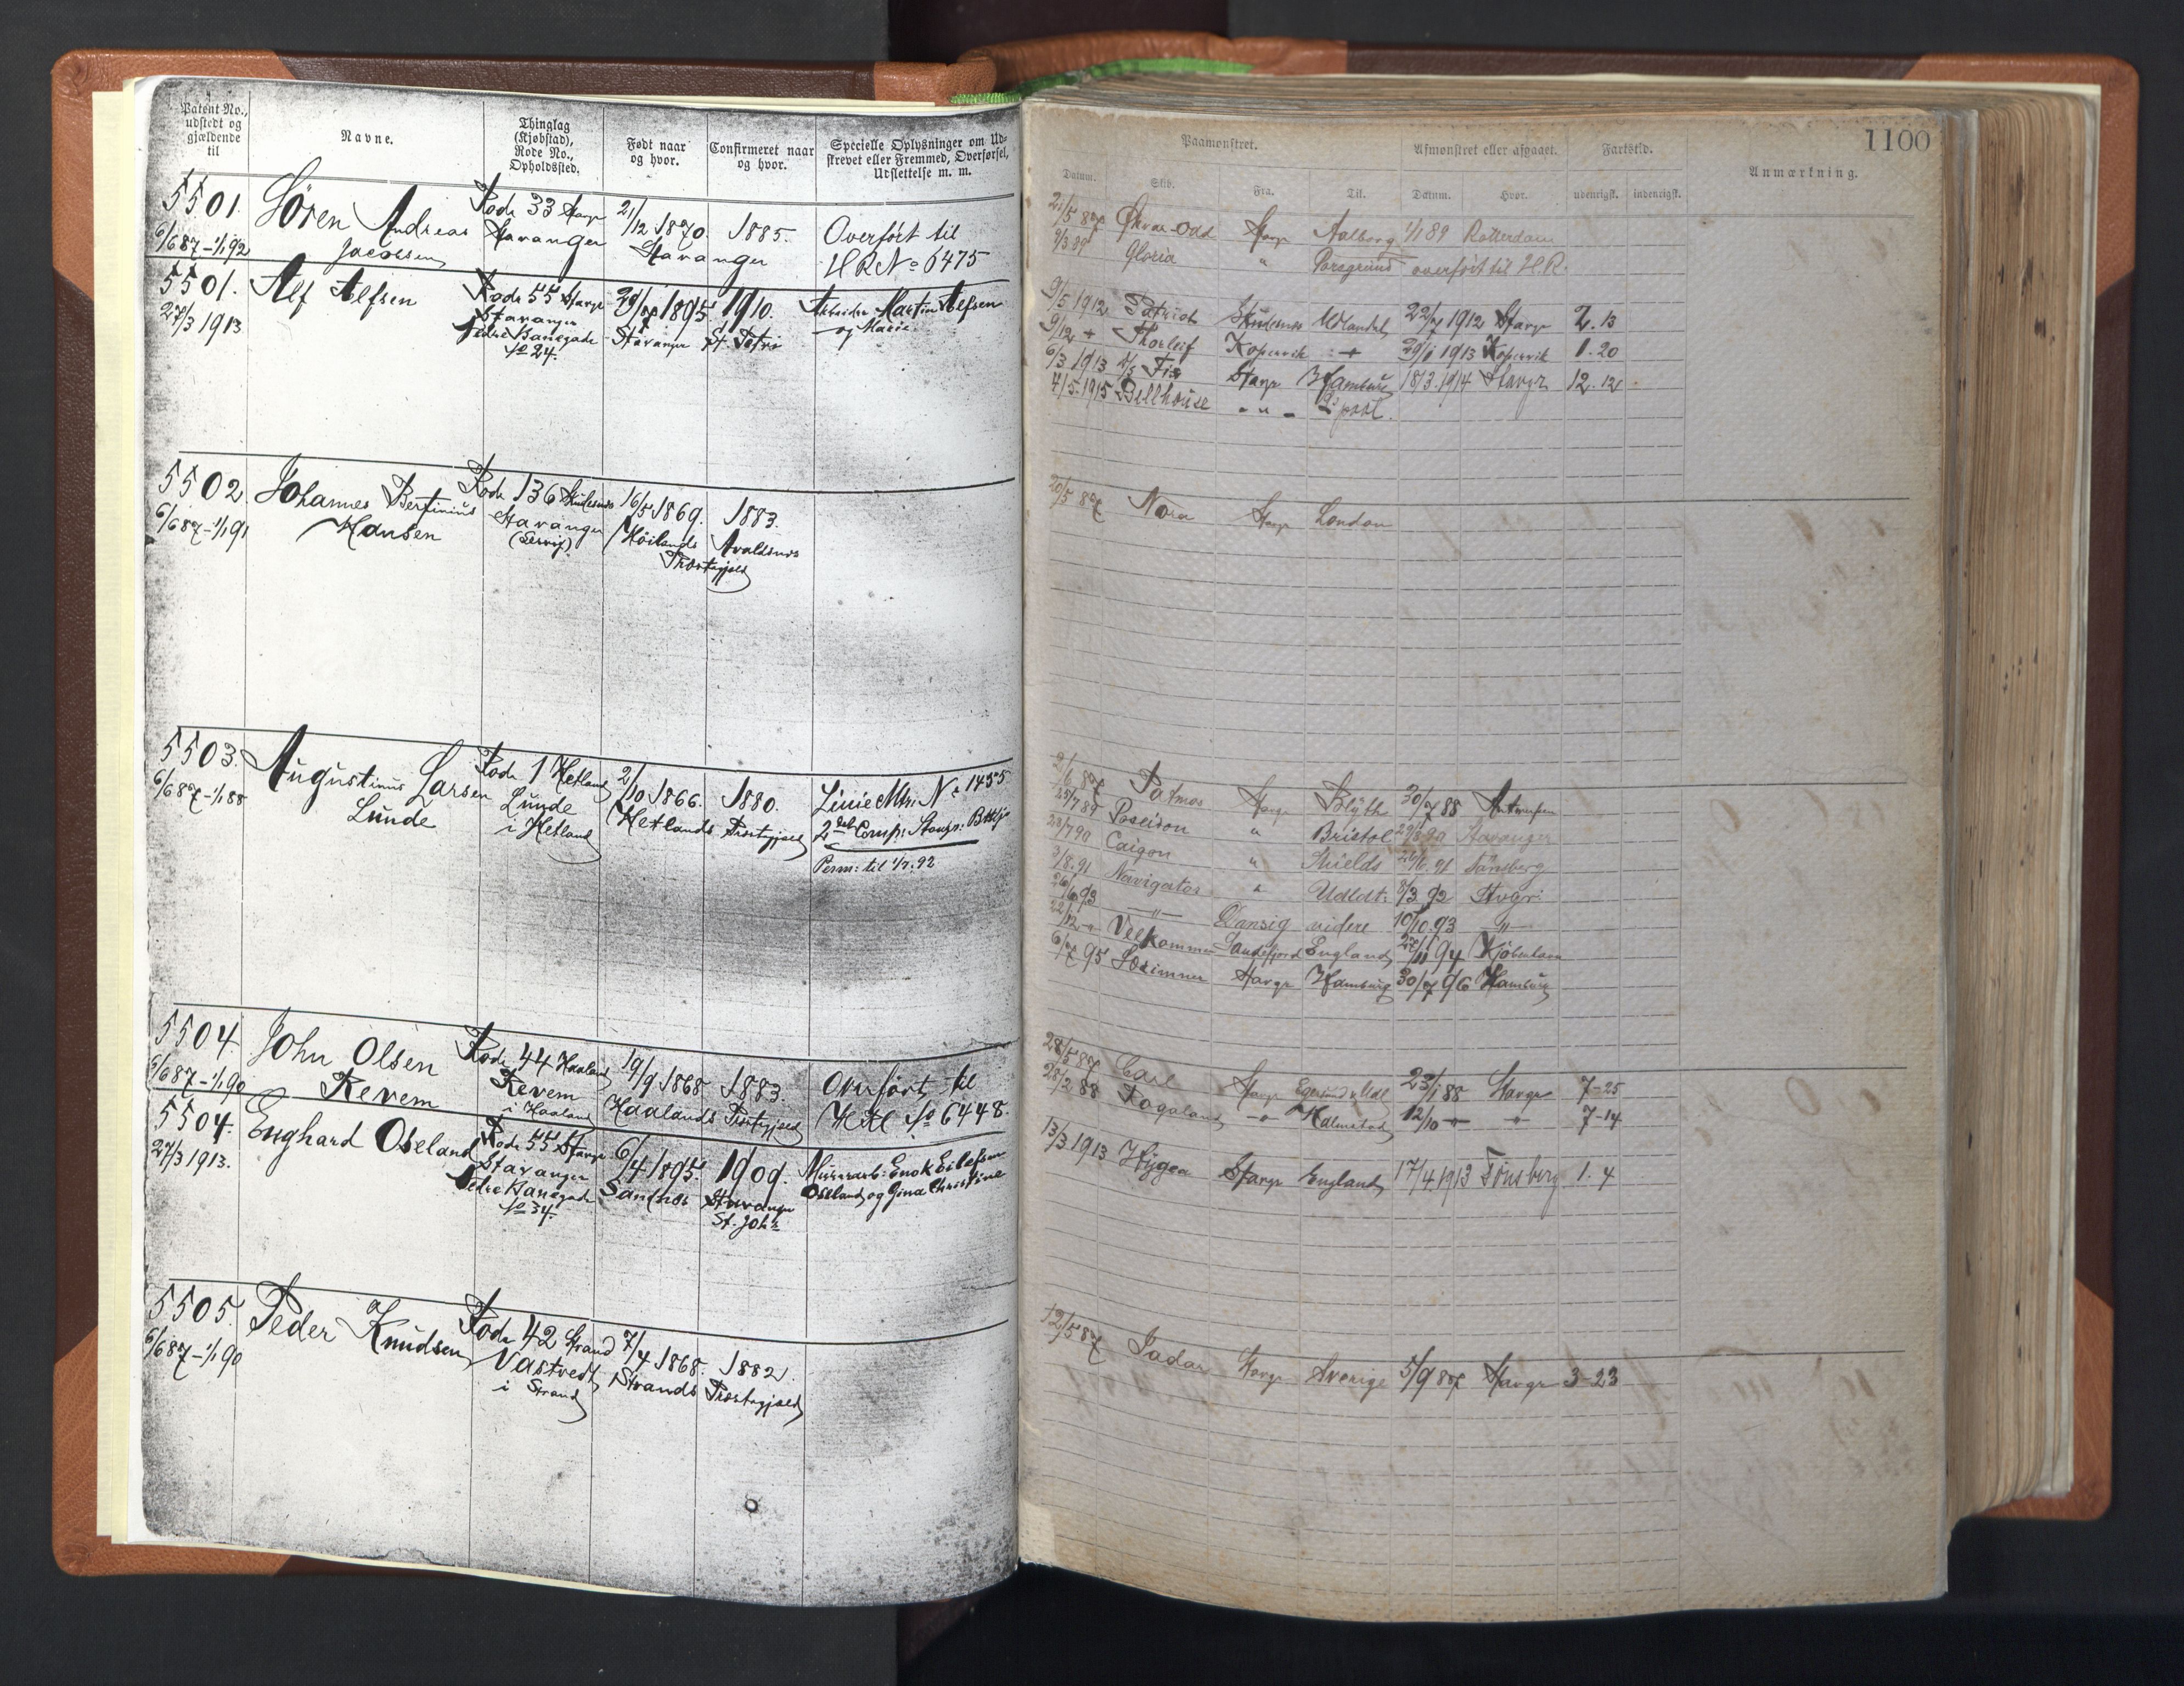 Patent No., udstedt og gjældende til
Navne.
Thinglag (Kjøbstad), Rode No., Opholdssted.
Født naar og hvor.
Confirmeret naar og hvor.
Specielle Oplysninger om Udskrevet eller Fremmed, Overførsel, Udslettelse m. m.
5501.
6/6 87 - 1/1 92
Sören Andreas
Jacobsen
Rode 33 Stavgr
Stavanger
21/12 1870.
Stavanger
1885.
Overført til
HR No 6475
5501.
27/3 1913.
Alf Alfsen
Rode 55 Stavgr
Stavanger
Pedre Banegade
No 24.
1895
Stavanger
1910.
St. Petri
Arbeider Martin Alfsen
og Marie
5502.
6/6 87 - 1/1 91
Johannes Bertinius
Hansen
Rode 136 Skudesnes
Stavanger
16/5 1869.
Höilands
Præstegjæld
1883.
Avaldsnes
5503.
6/6 87 - 1/1 88
Augustinus Larsen
Lunde
Rode 1 Hetland
Lunde
i Hetland
2/10 1866.
Hetlands
1880.
Præstegjæld
Linie Mtr: No 1455
2den Comp: Stavgr: Batlj:
Perm: til 1/7. 92
5504.
6/6 87 - 1/1 90
John Olsen
Revem
Rode 44 Haaland
Revem
i Haaland
19/9 1868
Haalands
1883.
Præstegjæld
Overført til
HR No 6448.
5504.
27/3 1913.
Enghard Oseland
Rode 55 Stavgr
Stavanger
Pedre Banegade
No 34.
6/4 1895.
Sandnes
1909.
Stavanger
St. Joh:
Murerarb: Enok Eilefsen
Oseland og Gina Christine
5505.
6/6 87 - 1/1 90
Peder Knudsen
Rode 42 Strand
Vastvedt
i Strand
7/4 1868.
Strands
1882.
Præstegjæld
1100
Paamønstret.
Afmønstret eller afgaaet.
Fartstid.
Anmærkning.
Datum.
Skib.
Fra.
Til.
Datum.
Hvor.
udenrigsk.
indenrigsk.
21/5 87 Ørvar-Odd Stavgr Aalborg 1/1 89 Rotterdam
9/3 89 Gloria " Porsgrund overført til H.R.
9/5 1912 Patriot Skudesnes Udlandet 22/7 1912 Stavgr 2. 13
9/12 Thorleif Kopervik 29/1 1913 Kopervik 1. 20
6/3 1913 Fix Stavgr Hamburg 18/3. 1914 Stavgr 12. 12
4/5. 1915 Bellhouse - " - L'pool.
20/5 87 Nora Stavgr London
2/6 87 Patmos Stavgr Blyth 30/7 88 Antwerpen
25/7 89 Poseidon " Bristol Stavanger
23/7 90 Caigon " Shields 26/6. 91 Tönsberg
3/8. 91 Navigator " Udldt: 8/3 92 Stvgr:
26/6 93 - " - Danzig videre 10/10. 93 - " -
22/12 Velkommen Sandefjord England 94 Kjöbenhavn
6/7 95 Stavgr Hamburg 30/7 96 Hamburg
28/5 87 Carl Stavgr Egersund & Udl 23/1 88 Stavgr 7-25
28/2 88 Fogaland Halmstad 12/10 7-14
13/3 1913 Hygea Stavgr England 17/4. 1913 Tönsberg 1. 4
12/5 87 Jadar Stavgr Sverige 5/9 87 Stavgr 3-23